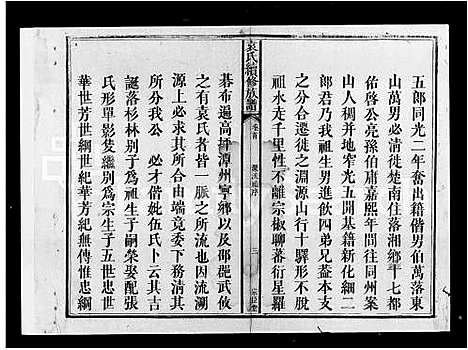 五郎同光二年奮出籍偕男伯萬落東
山萬男必清徙楚南住落湘鄉十七都
佑啓公亮孫伯庸嘉熙年間往同州案
山人稠并地窄光五開基籍新化細二
郎君乃我祖生男進飲四弟兄蓋本支
之分合遷徙之淵源山行十驛形不脫
祖水走千里性不離宗椒聊蕃衍星羅
袁氏續修族譜
卷首
三
碁布遍高擇潭州寧鄉以及邵邑武攸
之有袁氏者皆一脈之所流也因流溯
源上必求其合由端竟委下務清其
所分我公 必才偕妣伍氏卜云其吉
誕落杉林別子為祖生子嗣榮娶配張
氏形單影笈繼別為宗生子五世忠世
華世芳桃綱世紀華芳桃無傳惟忠綱